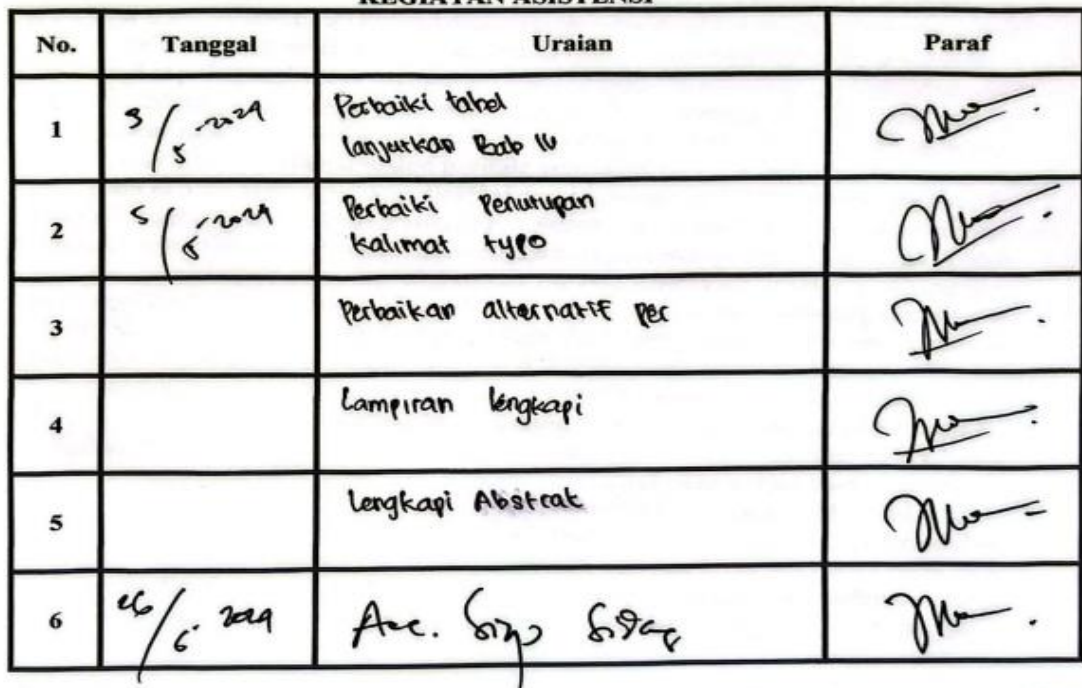 KEGIATAN ASISTENSI
No. Tanggal Uraian Paraf
1 3/5-2024 Perbaiki tabel
lanjutkan Bab IV
2 5/5-2024 Perbaiki Penutupan
kalimat typo
3 Perbaikan alternatif per
4 Lampiran lengkapi
5 Lengkapi Abstrak
6 26/6-2024 Acc. Siap Sidang